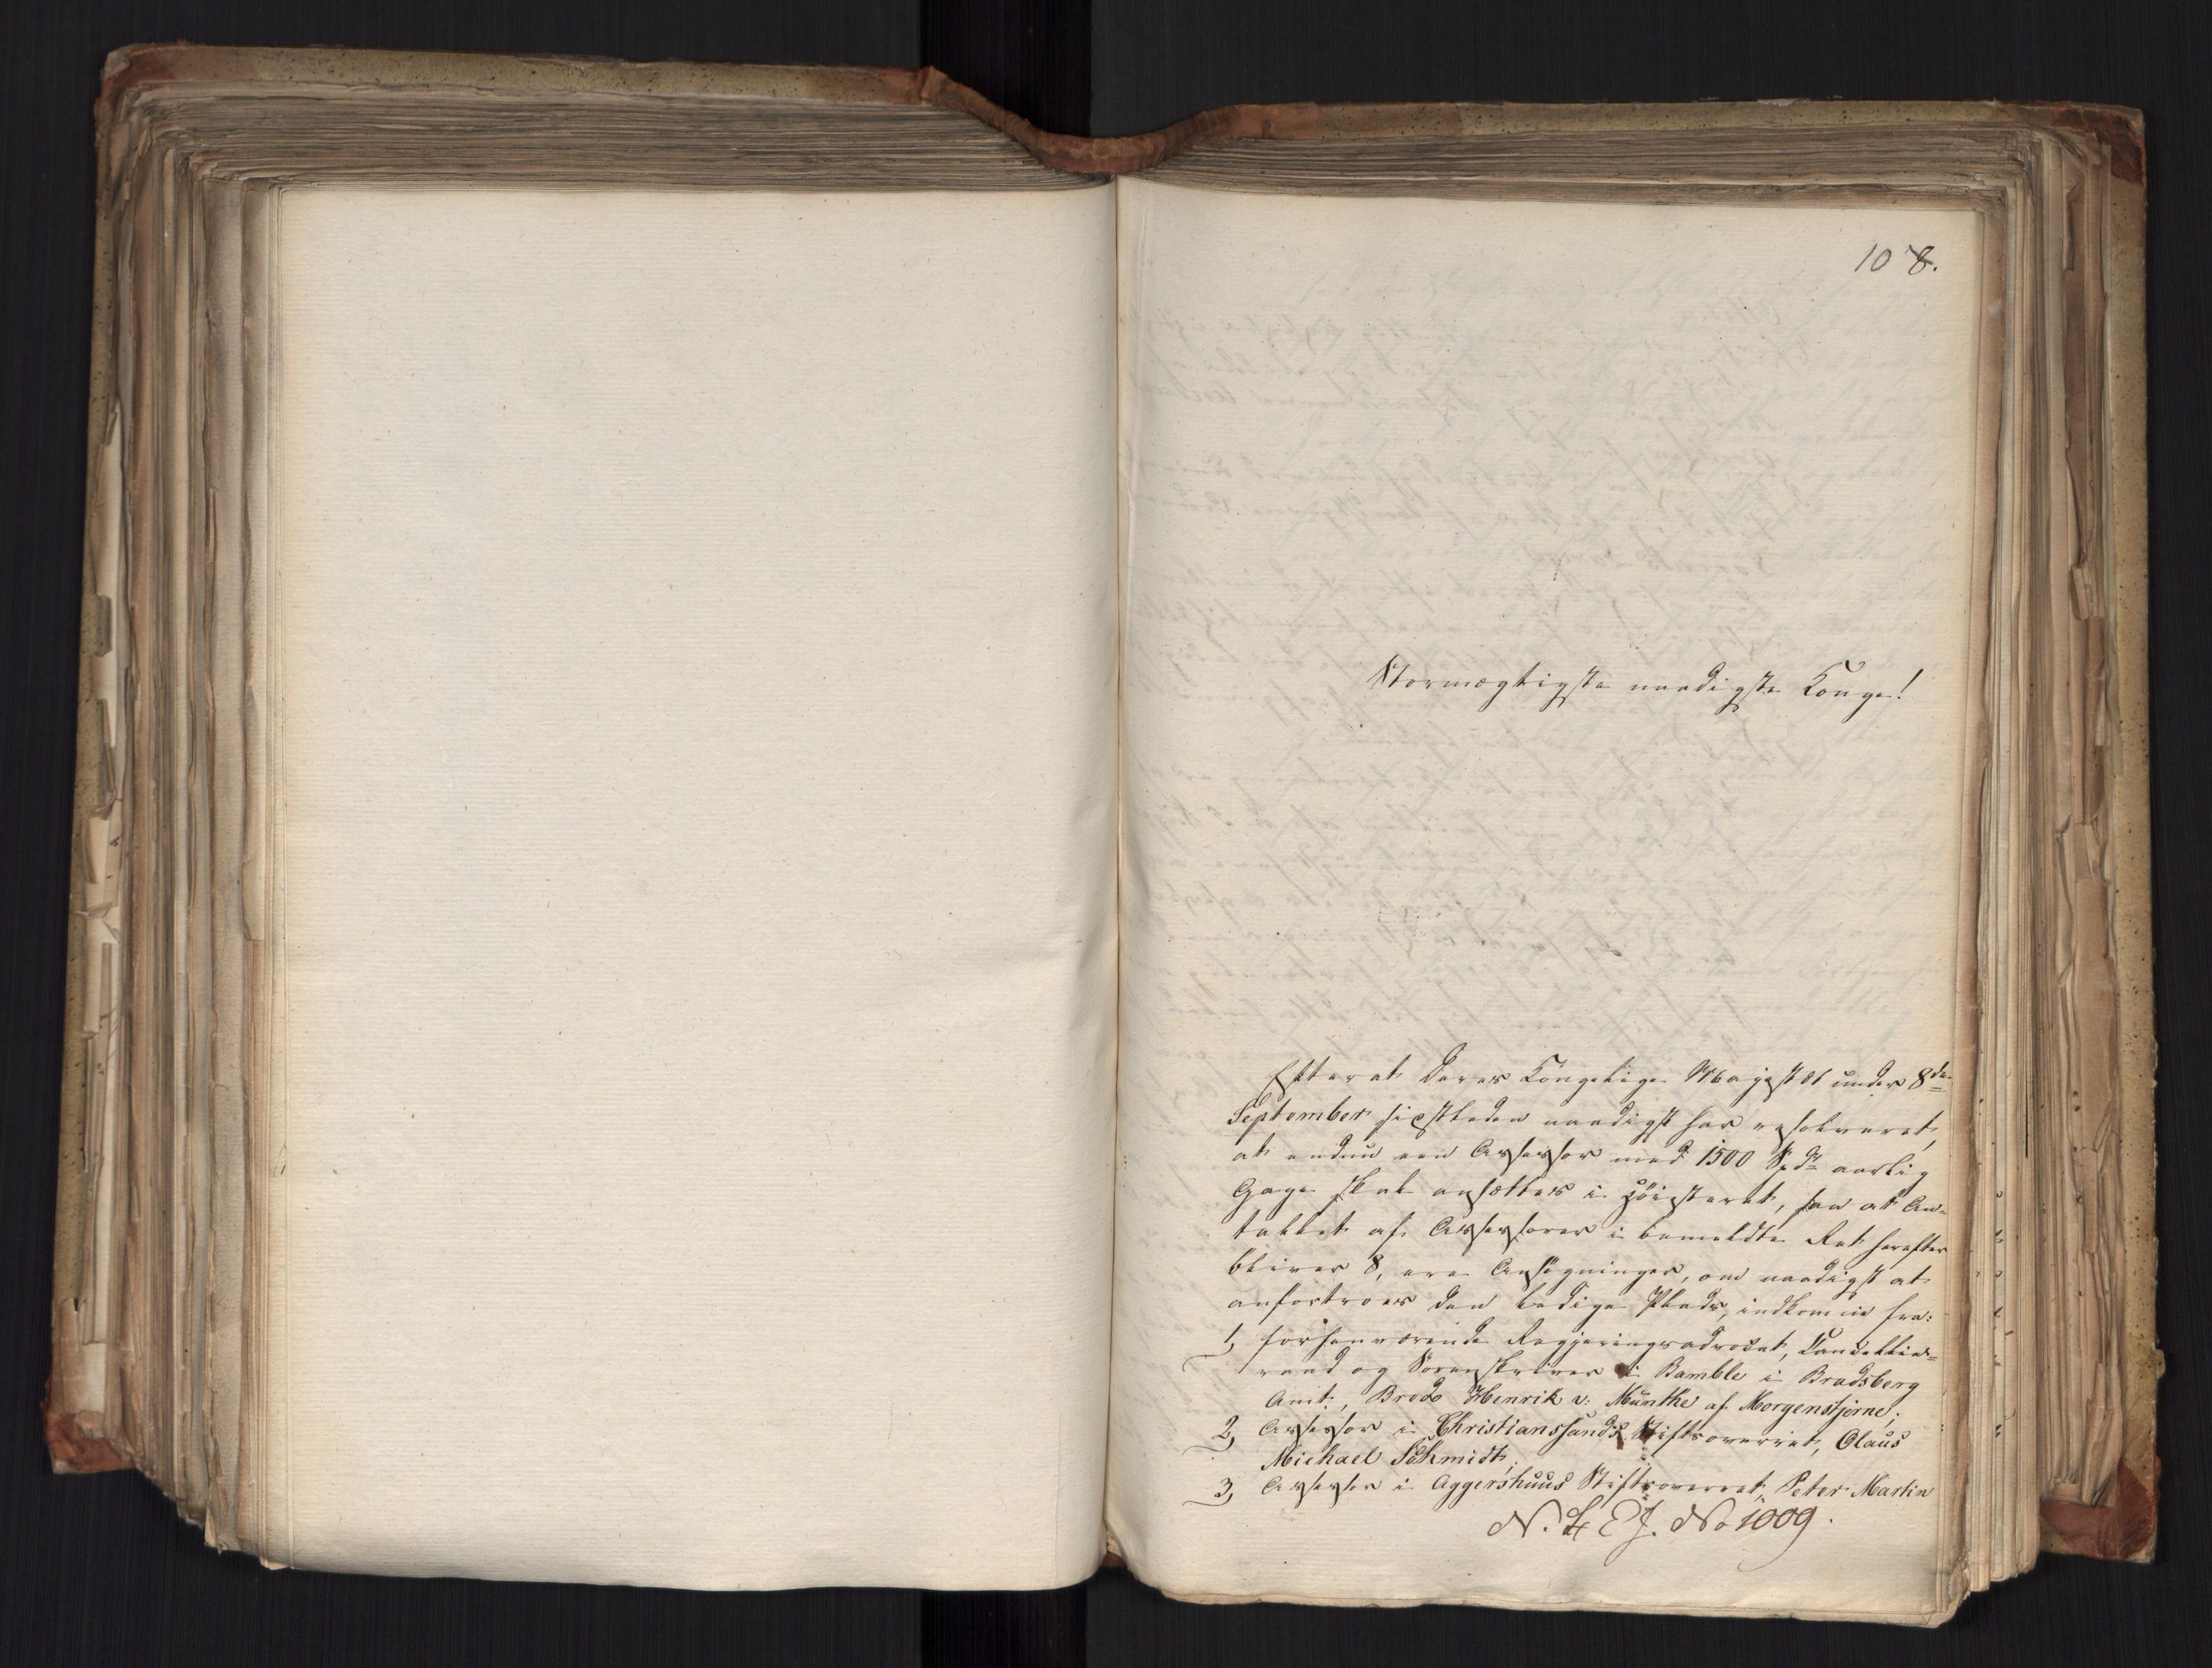 108.
Stormægtigste naadigste Konge!
Efterat Deres Kongelige Majestæt under 8de
September sidstleden naadigst har resolveret,
at endnu een Assessor med 1500 Spdr aarlig
Gage skal ansættes i Høiesteret, saa at An-
tallet af Assessorer i bemeldte Ret herefter
bliver 8, ere Ansøgninger, om naadigst at
anfortroes den ledige Plads, indkomne fra:
1, forhenværende Regjeringsadvocat, Cancellie-
raad og Sorenskriver i Bamble i Bradsberg
Amt, Bredo Henrik v: Munthe af Morgenstjerne;
2, Assessor i Christianssands Stiftsoverret, Olaus
Michael Schmidt;
3, Assessor i Aggershuus Stiftsoverret, Peter Martin
No 1009.